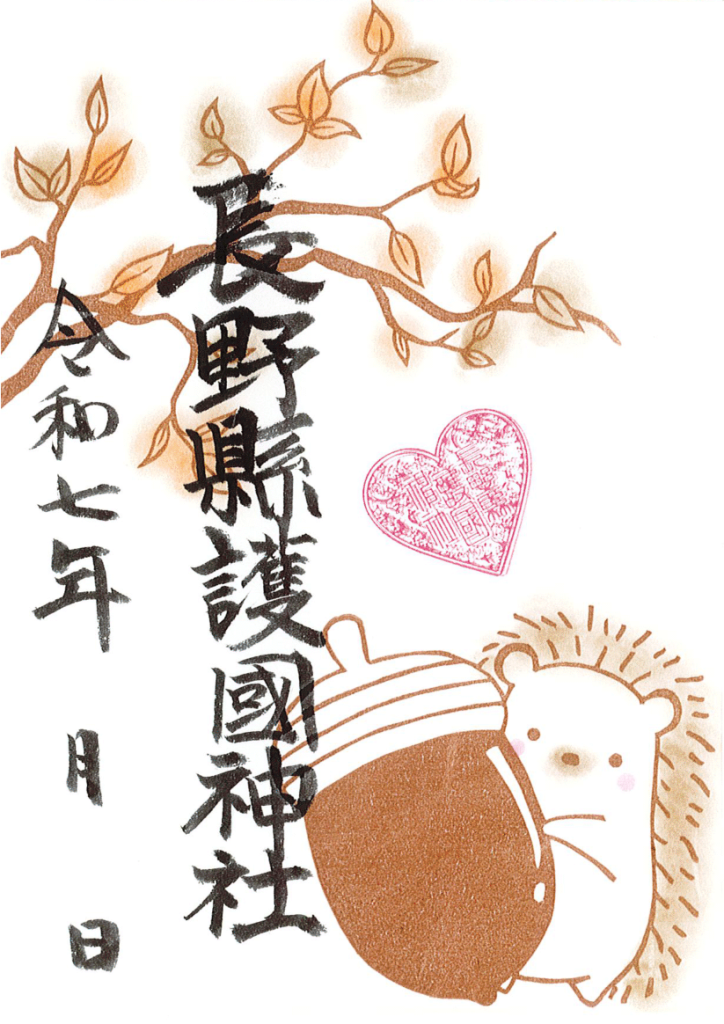 長野縣護國神社
令和七年　月　日